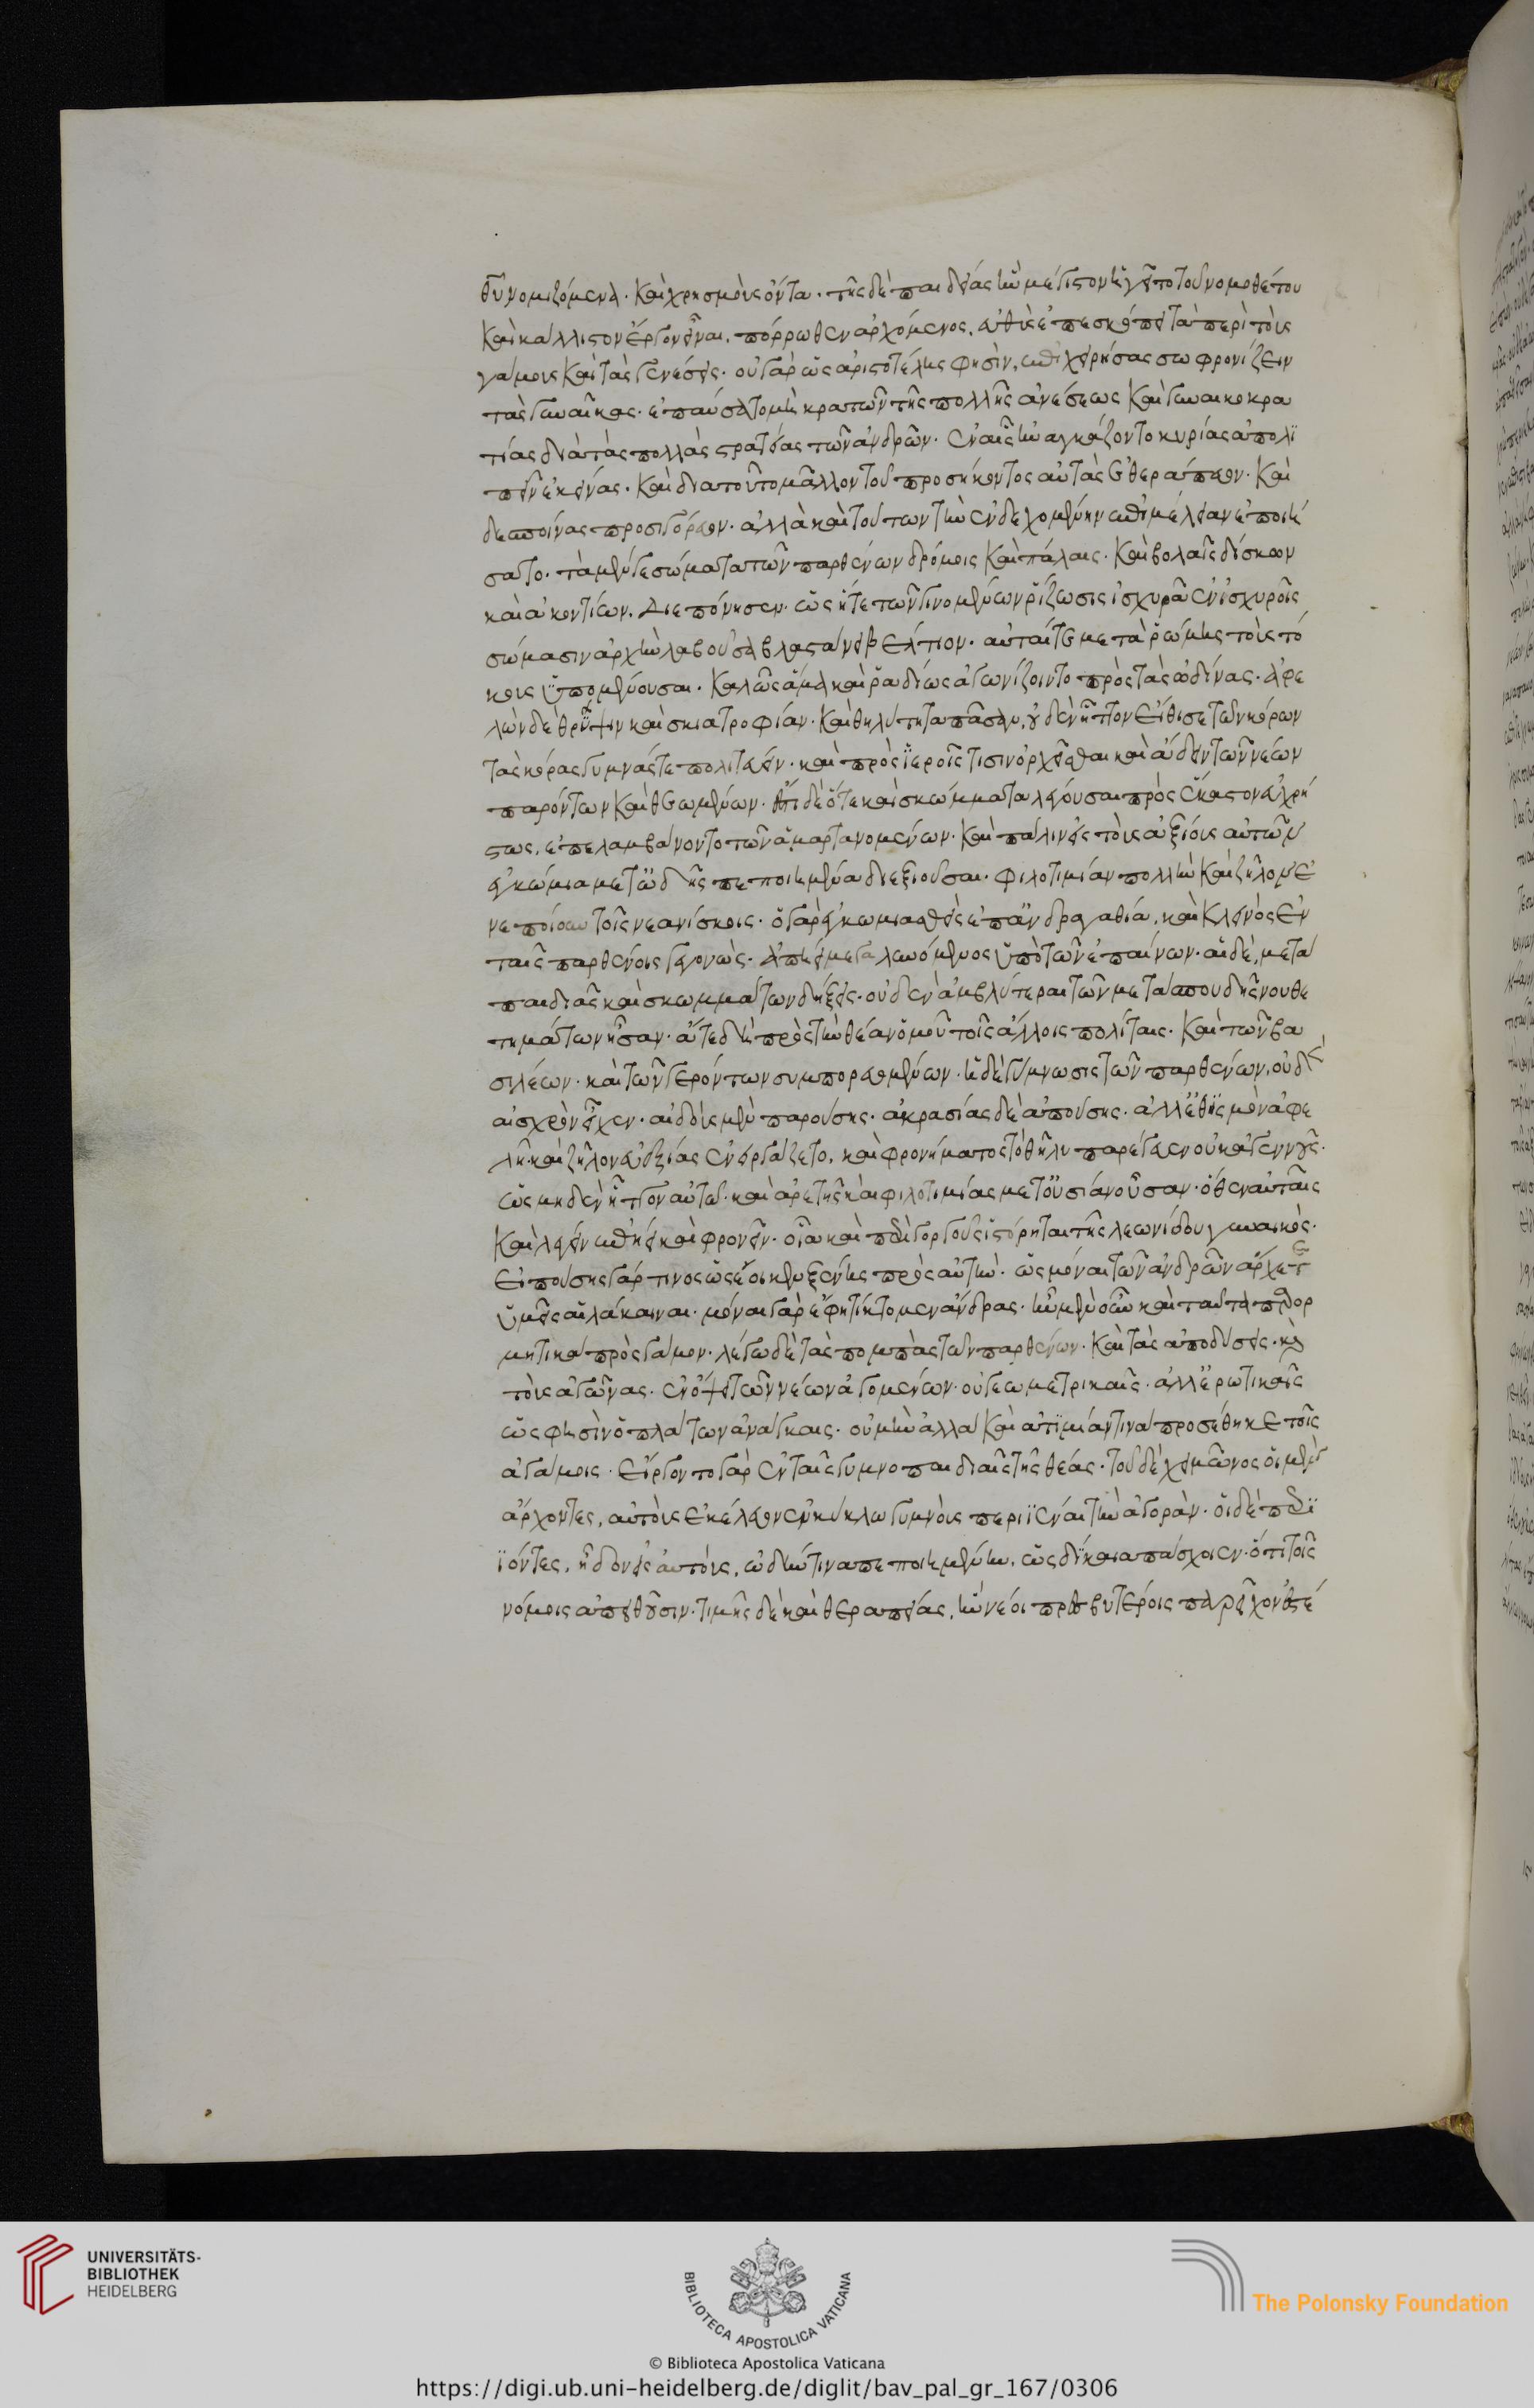 θεοῦ νομιζόμενα· καὶ χρησμοὺς ὄντα. τῆς δὲ παιδείας ἣν μέγιστον ἡγεῖτο τοῦ νομοθέτου
καὶ κάλλιστον ἔργον εἶναι, πόρρωθεν ἀρχόμενος, εὐθὺς ἐπεσκόπει τὰ περὶ τοὺς
γάμους καὶ τὰς γενέσεις. οὐ γὰρ ὡς ἀριστοτέλης φησὶν, ἐπιχειρήσας σωφρονίζειν
τὰς γυναῖκας. ἐπαύσατο μὴ κρατῶν τῆς πολλῆς ἀνέσεως καὶ γυναικοκρα
τίας διὰ τὰς πολλὰς στρατείας τῶν ἀνδρῶν. ἐν αἷς ἠναγκάζοντο κυρίας ἀπολι
πεῖν ἐκείνας. καὶ διατοῦτο μᾶλλον τοῦ προσήκοντος αὐτὰς ἐθεράπευον. καὶ
δεσποίνας προσηγόρευον. ἀλλὰ καὶ τούτων τὴν ἐνδεχομένην ἐπιμέλειαν ἐποιή
σατο. τὰ μέν γε σώματα τῶν παρθένων δρόμοις καὶ πάλαις. καὶ βολαῖς δίσκων
καὶ ἀκοντίων. διεπόνησεν. ὡς ἥ τε τῶν γινομένων ῥίζωσις ἰσχυρὰ ἐν ἰσχυροῖς
σώμασιν ἀρχὴν λαβοῦσα βλαστάνει βέλτιον. αὐταί τε μετὰ ῥώμης τοὺς τό
κους ὑπομένουσαι. καλῶς ἅμα καὶ ῥαδίως ἀγωνίζοιντο πρὸς τὰς ὠδῖνας. ἀφε
λὼν δὲ θρύψιν καὶ σκιατροφίαν. καὶ θηλύτητα πᾶσαν, οὐδὲν ἧττον εἴθισε τῶν κόρων
τὰς κόρας γυμνάς τε πολιτεύειν. καὶ πρὸς ἱεροῖς τισιν ὀρχεῖσθαι καὶ ἄδειν τῶν νέων
παρόντων καὶ θεωμένων. ἔστι δὲ ὅτε καὶ σκώμματα λέγουσαι πρὸς ἕκαστον εὐχρή
στως, ἐπελαμβάνοντο τῶν ἁμαρτανομένων. καὶ πάλιν εἰς τοὺς ἀξίους αὐτῶν
ἐγκώμια μετωδῆς πεποιημένα διεξιοῦσαι. φιλοτιμίαν πολλὴν καὶ ζῆλον ἐ
νεποίουν τοῖς νεανίσκοις. ὁ γὰρ ἐγκωμιασθεὶς ἐπ ἀνδραγαθία, καὶ κλεινὸς ἐν
ταῖς παρθένοις γεγονὼς. ἀπήει μεγαλυνόμενος ὑπὸ τῶν ἐπαίνων. αἱ δὲ, μετὰ
παιδιᾶς καὶ σκωμμάτων δήξεις. οὐδὲν ἀμβλύτεραι τῶν μετὰ σπουδῆς νουθε
τημάτων ἦσαν. ἅτε δὴ πρὸς τὴν θέαν ὁμοῦ τοῖς ἄλλοις πολίταις. καὶ τῶν βα
σιλέων. καὶ τῶν γερόντων συμπορευομένων. ἡ δὲ γύμνωσις τῶν παρθένων, οὐδὲν
αἰσχρὸν εἶχεν. αἰδοῦς μὲν παρούσης. ἀκρασίας δὲ ἀπούσης. ἀλλ ἐθισμὸν ἀφε
λῆ. καὶ ζῆλον εὐεξίας ἐνειργάζετο, καὶ φρονήματος τὸ θῆλυ παρέγευεν οὐκ ἀγεννοῦς.
ὡς μηδὲν ἧττον αὐτῶ. καὶ ἀρετῆς καὶ φιλοτιμίας μετουσίαν οὖσαν. ὅθεν αὐταῖς
καὶ λέγειν ἐπήει καὶ φρονεῖν. οἷα καὶ περὶ γοργοῦς ἱστόρηται τῆς λεωνίδου γυναικός.
εἰπούσης γάρ τινος ὡς ἔοικεν ξένης πρὸς αὐτὴν. ὡς μόναι τῶν ἀνδρῶν ἄρχετε
ὑμεῖς αἱ λάκαιναι. μόναι γὰρ ἔφη τίκτομεν ἄνδρας. ἦν μὲν οὖν καὶ ταῦτα παρορ
μητικὰ πρὸς γάμον. λέγω δὲ τὰς πομπὰς τῶν παρθένων. καὶ τὰς ἀποδύσεις. καὶ
τοὺς ἀγῶνας. ἐν ὄψει τῶν νέων ἀγομένων. οὐ γεωμετρικαῖς. ἀλλ ἐρωτικαῖς
ὡς φησὶν ὁ πλάτων ἀνάγκαις. οὐ μὴν ἀλλὰ καὶ ἀτιμίαν τινὰ προσέθηκε τοῖς
ἀγάμοις. εἴργοντο γὰρ ἐν ταῖς γυμνοπαιδίαις τῆς θέας. τοῦ δὲ χειμῶνος οἱ μὲν
ἄρχοντες, αὐτοὺς ἐκέλευον ἐν κύκλω γυμνοὺς περιϊέναι τὴν ἀγορὰν. οἱ δὲ περι
ϊόντες, ἦδον εἰς αὐτοὺς, ὠδήν τινα πεποιημένην, ὡς δίκαια πάσχοιεν. ὅτι τοῖς
νόμοις ἀπειθοῦσιν. τιμῆς δὲ καὶ θεραπείας, ἣν νέοι πρεσβυτέροις παρεῖχον ἐστέ
UNIVERSITÄTS-
BIBLIOTHEK
HEIDELBERG
BIBLIOTECA APOSTOLICA VATICANA
The Polonsky Foundation
© Biblioteca Apostolica Vaticana
https://digi.ub.uni-heidelberg.de/diglit/bav_pal_gr_167/0306